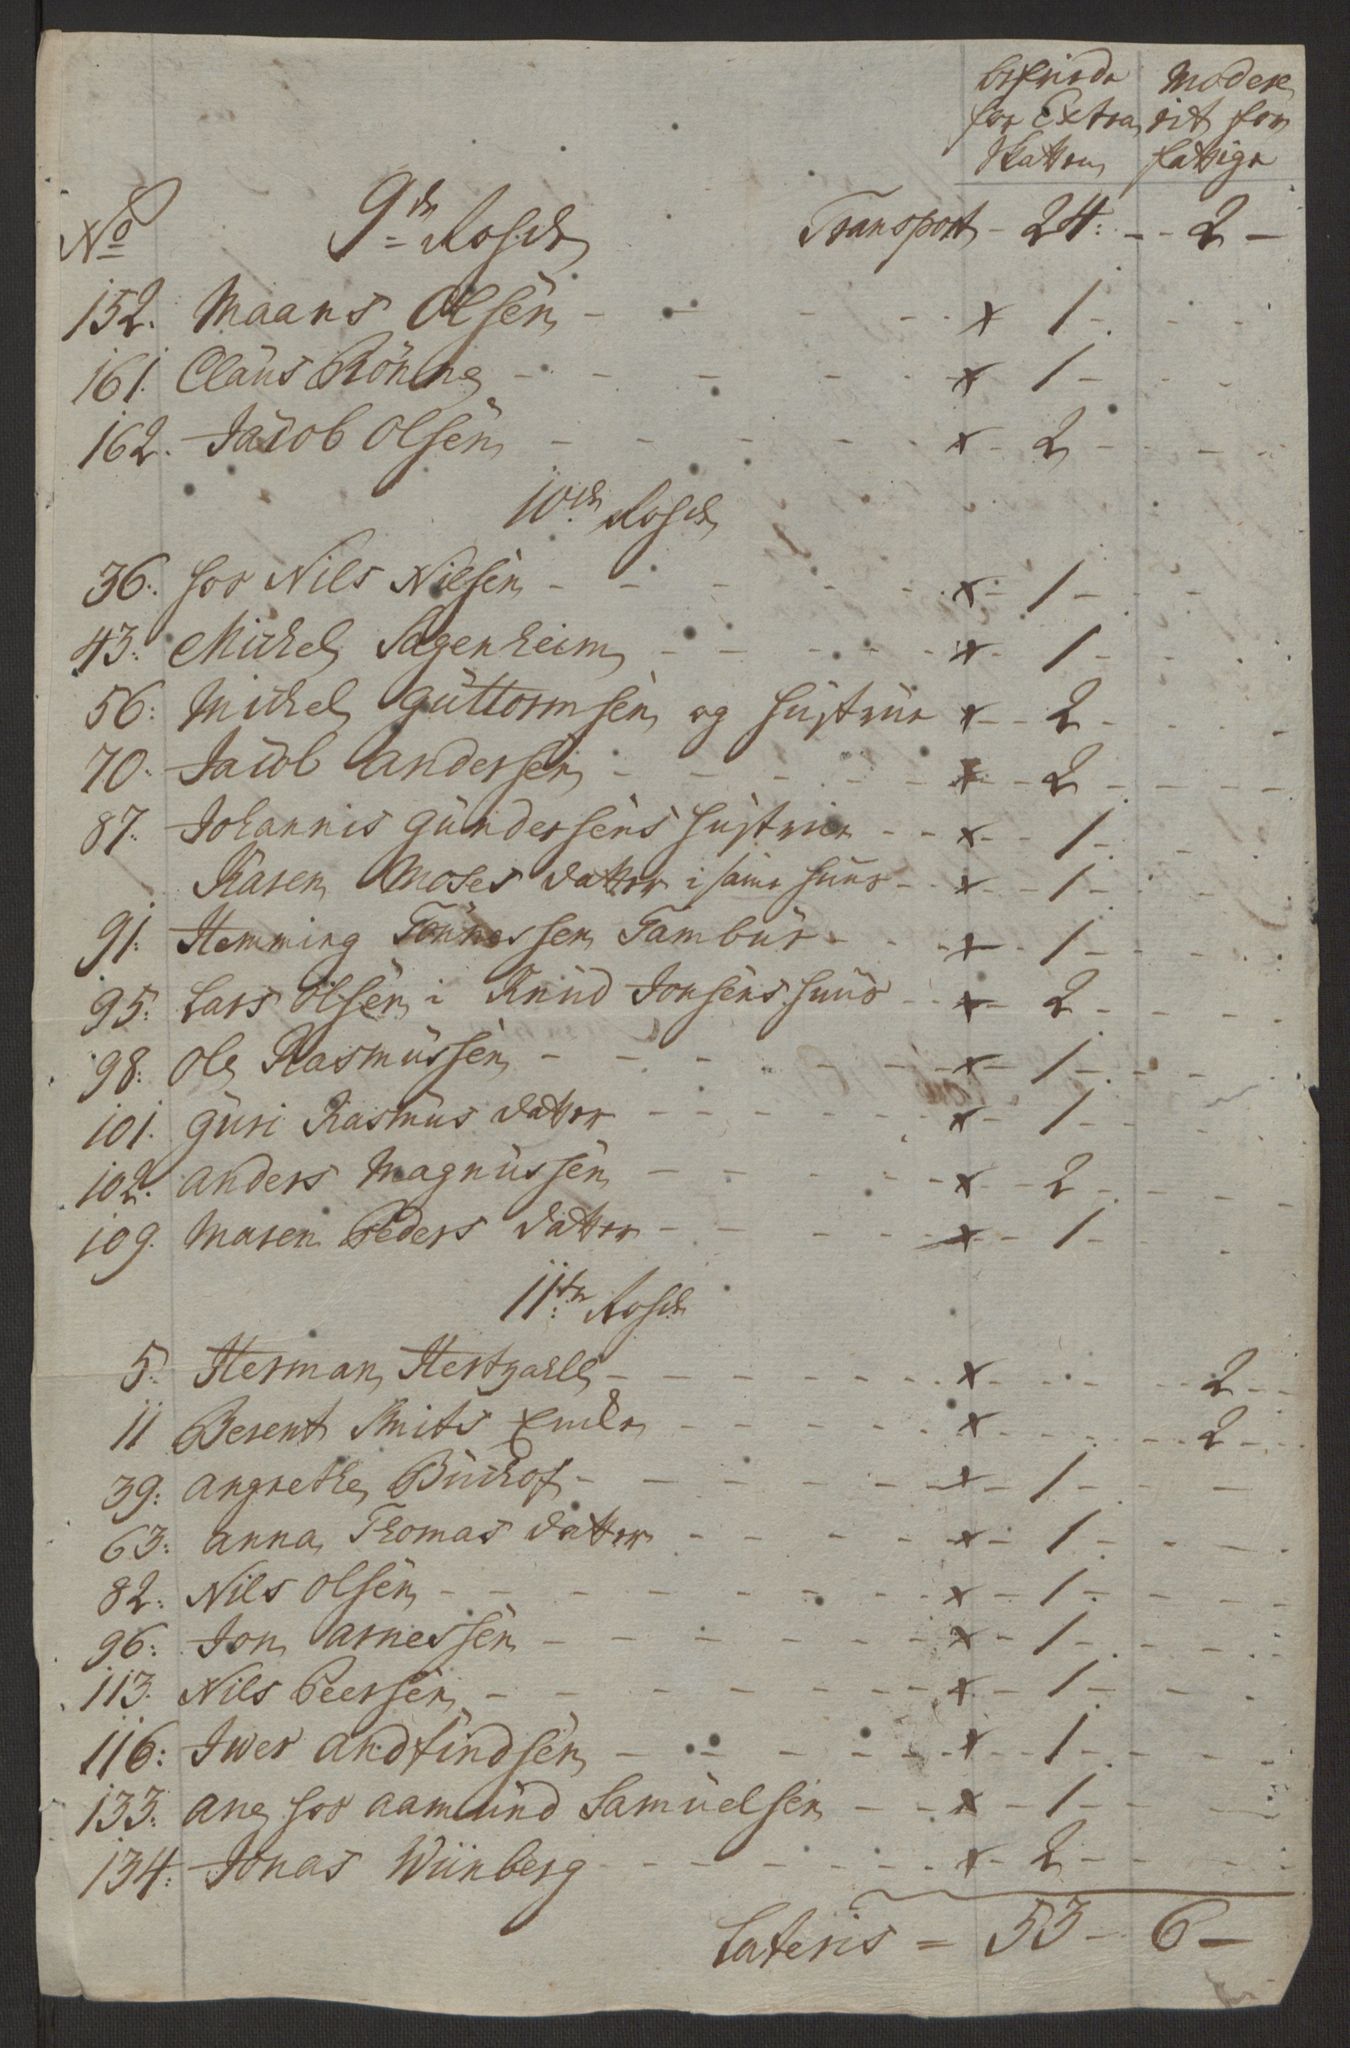 befriede Modere
for Extra rit for
Skatten fattige
No 9de Rode Transport - 24: - - 2 -
152. Maans Olsen - - - - x 1 -
161. Claus Rönne - - - - x 1 -
162. Jacob Olsen - - - - x - 2 -
10de Rode
36. for Nils Nilsen - - - - x - 1 -
43. Michel Sagenheim - - - - x - 1 -
56: Michel Guttormsen og Hustrue x - - 2 -
70. Jacob Andersen - - - - x - - 2 -
87. Johannis Gundersens Hustrue - - x - - 1 -
Karen Moses datter i same Huus - - x - - 1 -
91. Hemming Tönnessen Tambur - - x - - 1 -
95. Lars Olsen i Knud Jonsens Huus - - x - - 2 -
98. Ole Rasmussen - - - - x - - 1 -
101. Guri Rasmus datter - - - - x - - 1 -
102. Anders Magnussen - - - - x - - 2 -
109. Maren Peders datter - - - - x - - 1 -
11te Rode
5. Herman - - - - x - - - 2 - -
11 Berent Smits Encke - - - - x - - - 2 - -
39: Angrethe Buchof - - - - x - - 1 -
63: Anna Thomas datter - - - - x - - 1 -
82. Nils Olsen - - - - x - - 1 -
96: Jon Arnessen - - - - x - - 1 -
113. Nils Peersen - - - - x - - 1 -
116: Iwer Andfindsen - - - - x - - 1 -
133: Ane for Aamund Samuelsen - - x - - 1 -
134: Jonas Wiinberg - - - - x - 2 -
Lateris = 53 - 6 -